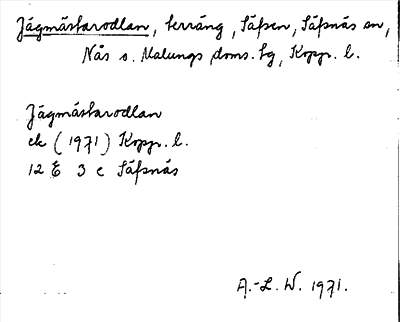 Jägmästarodlan, terräng, Säfsen, Säfsnäs sn,
Nås o. Malungs doms. hg, Kopp. l.
Jägmästarodlan
ek (1971) Kopp. l.
12 E 3 c Säfsnäs
A.-L. W. 1971.